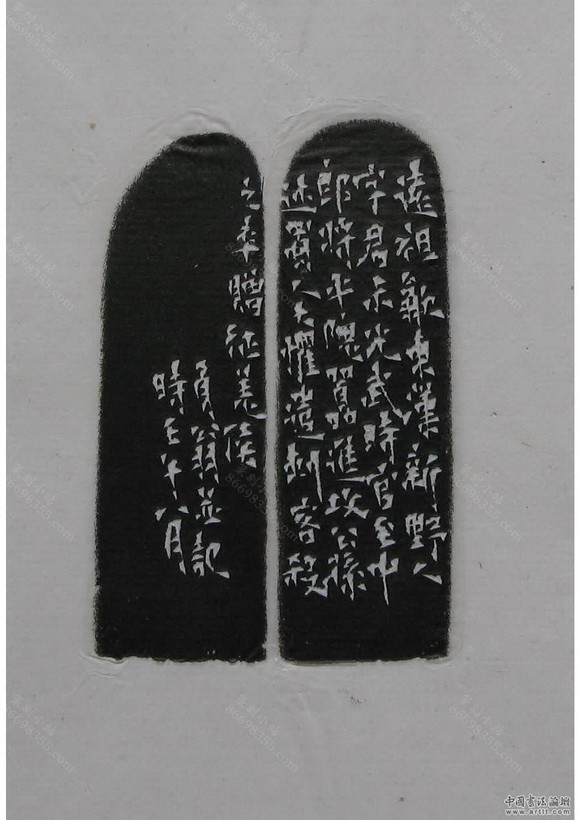 遠祖歙東漢新野人
字君尗光武時官至中
郎將平隗囂進攻公孫
述蜀人大懼遣刺客殺
之奉贈征羌侯
負翁並記
時壬午八月
中國書法論壇
www.artil.com